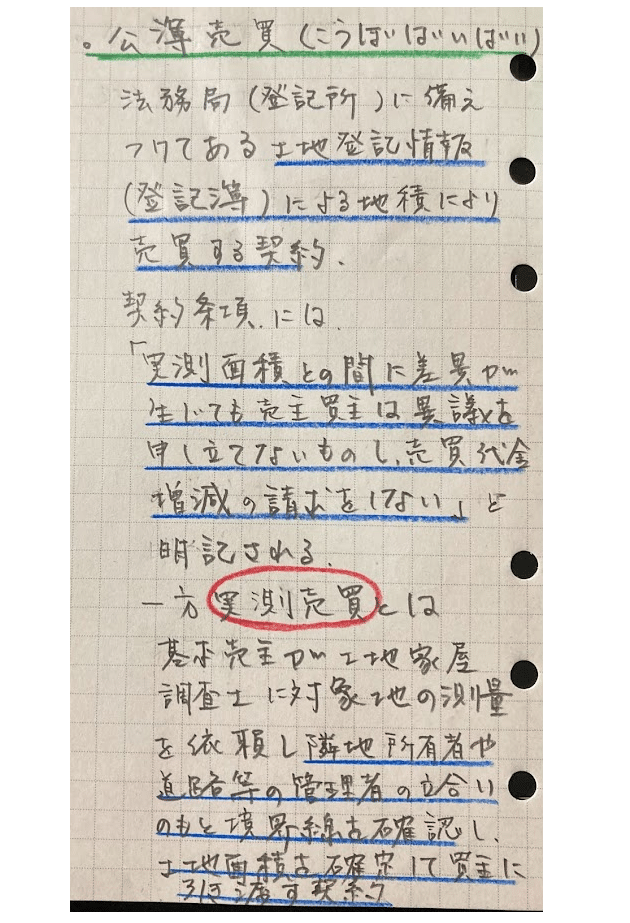 。公簿売買(こうぼばいばい)
法務局(登記所)に備え
つけてある土地登記情報
(登記簿)による地積により
売買する契約、
契約条項.には、
「実測面積との間に差異が
生じても売主買主は異議を
申し立てないものし、売買代金
増減の請求をしない」と
明記される、
一方実測売買とは
基本売主が土地家屋
調査士に対象地の測量
を依頼し隣地所有者や
道路等の管理者の立合い
のもと境界線を確認し、
土地面積を確定して買主に
引き渡す契約